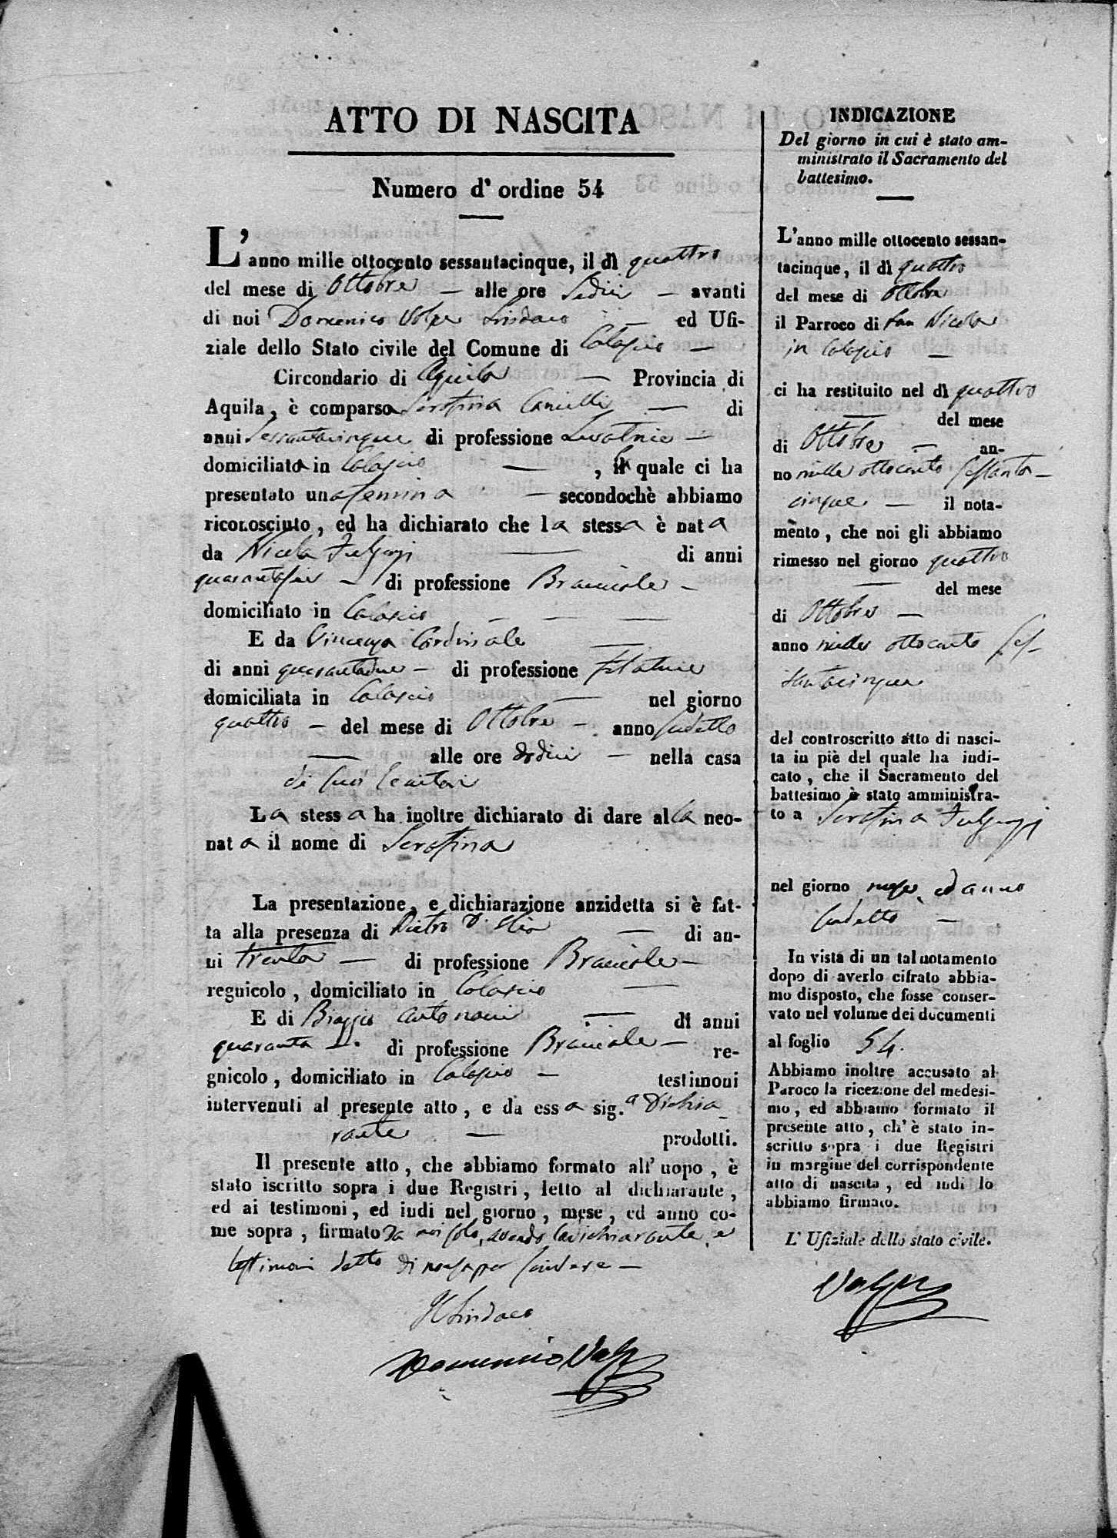 ATTO DI NASCITA
Numero d' ordine 54
L'anno mille ottocento sessantacinque, il dì quattro
del mese di Ottobre — alle ore Sedici — avanti
di noi Domenico Volpe Sindaco — ed Ufi-
ziale dello Stato civile del Comune di Calascio —
Circondario di Aquila — Provincia di
Aquila, è comparsa Serafina — di
anni Sessantacinque di professione Levatrice —
domiciliata in Calascio — , la quale ci ha
presentato una femmina — secondochè abbiamo
riconosciuto, ed ha dichiarato che la stessa è nata
da Nicola Fulgenzi — di anni
quarantasei — di professione Bracciale —
domiciliato in Calascio — — —
E da Vincenza Cardinale —
di anni di professione Filatrice
domiciliata in Calascio — nel giorno
quattro — del mese di Ottobre — anno sudetto
— alle ore dodici — nella casa
di suoi Genitori
La stessa ha inoltre dichiarato di dare alla neo-
nata il nome di Serafina
La presentazione, e dichiarazione anzidetta si è fat-
ta alla presenza di Pietro — di an-
ni trenta — di professione Bracciale —
regnicolo, domiciliato in Calascio —
E di Biaggio Antonacci — di anni
quaranta — di professione Bracciale — re-
gnicolo, domiciliato in Calascio — testimoni
intervenuti al presente atto, e da essa sig.a Dichia
rante — prodotti.
Il presente atto, che abbiamo formato all' uopo, è
stato iscritto sopra i due Registri, letto al dichiarante,
ed ai testimoni, ed indi nel giorno, mese, ed anno co-
me sopra, firmato da noi solo, avendo la dichiarante, e
testimoni detto di non saper scrivere —
Il Sindaco
Domenico Volpe
INDICAZIONE
Del giorno in cui è stato am-
ministrato il Sacramento del
battesimo.
L'anno mille ottocento sessan-
tacinque, il dì quattro
del mese di Ottobre
il Parroco di San Nicola
in Calascio —
ci ha restituito nel dì quattro
— del mese
di Ottobre — an-
no mille ottocento sessanta—
cinque — il nota-
mento, che noi gli abbiamo
rimesso nel giorno quattro
— del mese
di Ottobre —
anno mille ottocento ses-
santacinque
del controscritto atto di nasci-
ta in piè del quale ha indi-
cato, che il Sacramento del
battesimo è stato amministra-
to a Serafina Fulgenzi
nel giorno mese, ed anno
sudetto —
In vista di un tal notamento
dopo di averlo cifrato abbia-
mo disposto, che fosse conser-
vato nel volume dei documenti
al foglio 54.
Abbiamo inoltre accusato al
Paroco la ricezione del medesi-
mo, ed abbiamo formato il
presente atto, ch'è stato in-
scritto sopra i due Registri
in margine del corrispondente
atto di nascita, ed indi lo
abbiamo firmato.
L' Ufiziale dello stato civile.
Volpe